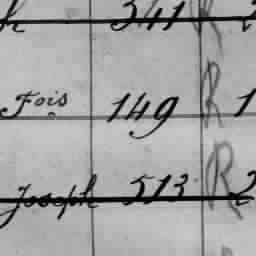 h 341 R 2
Fois 149 R 1
Joseph 513 R 2